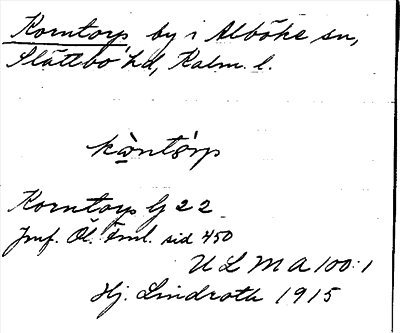 Korntorp by i Alböke sn,
Slättbo hd, Kalm. l.
kò̱ntó̱rp
Korntorp G 22
Jmf. Öl. Fml. sid 450
U L M A 100:1
Hj. Lindroth 1915